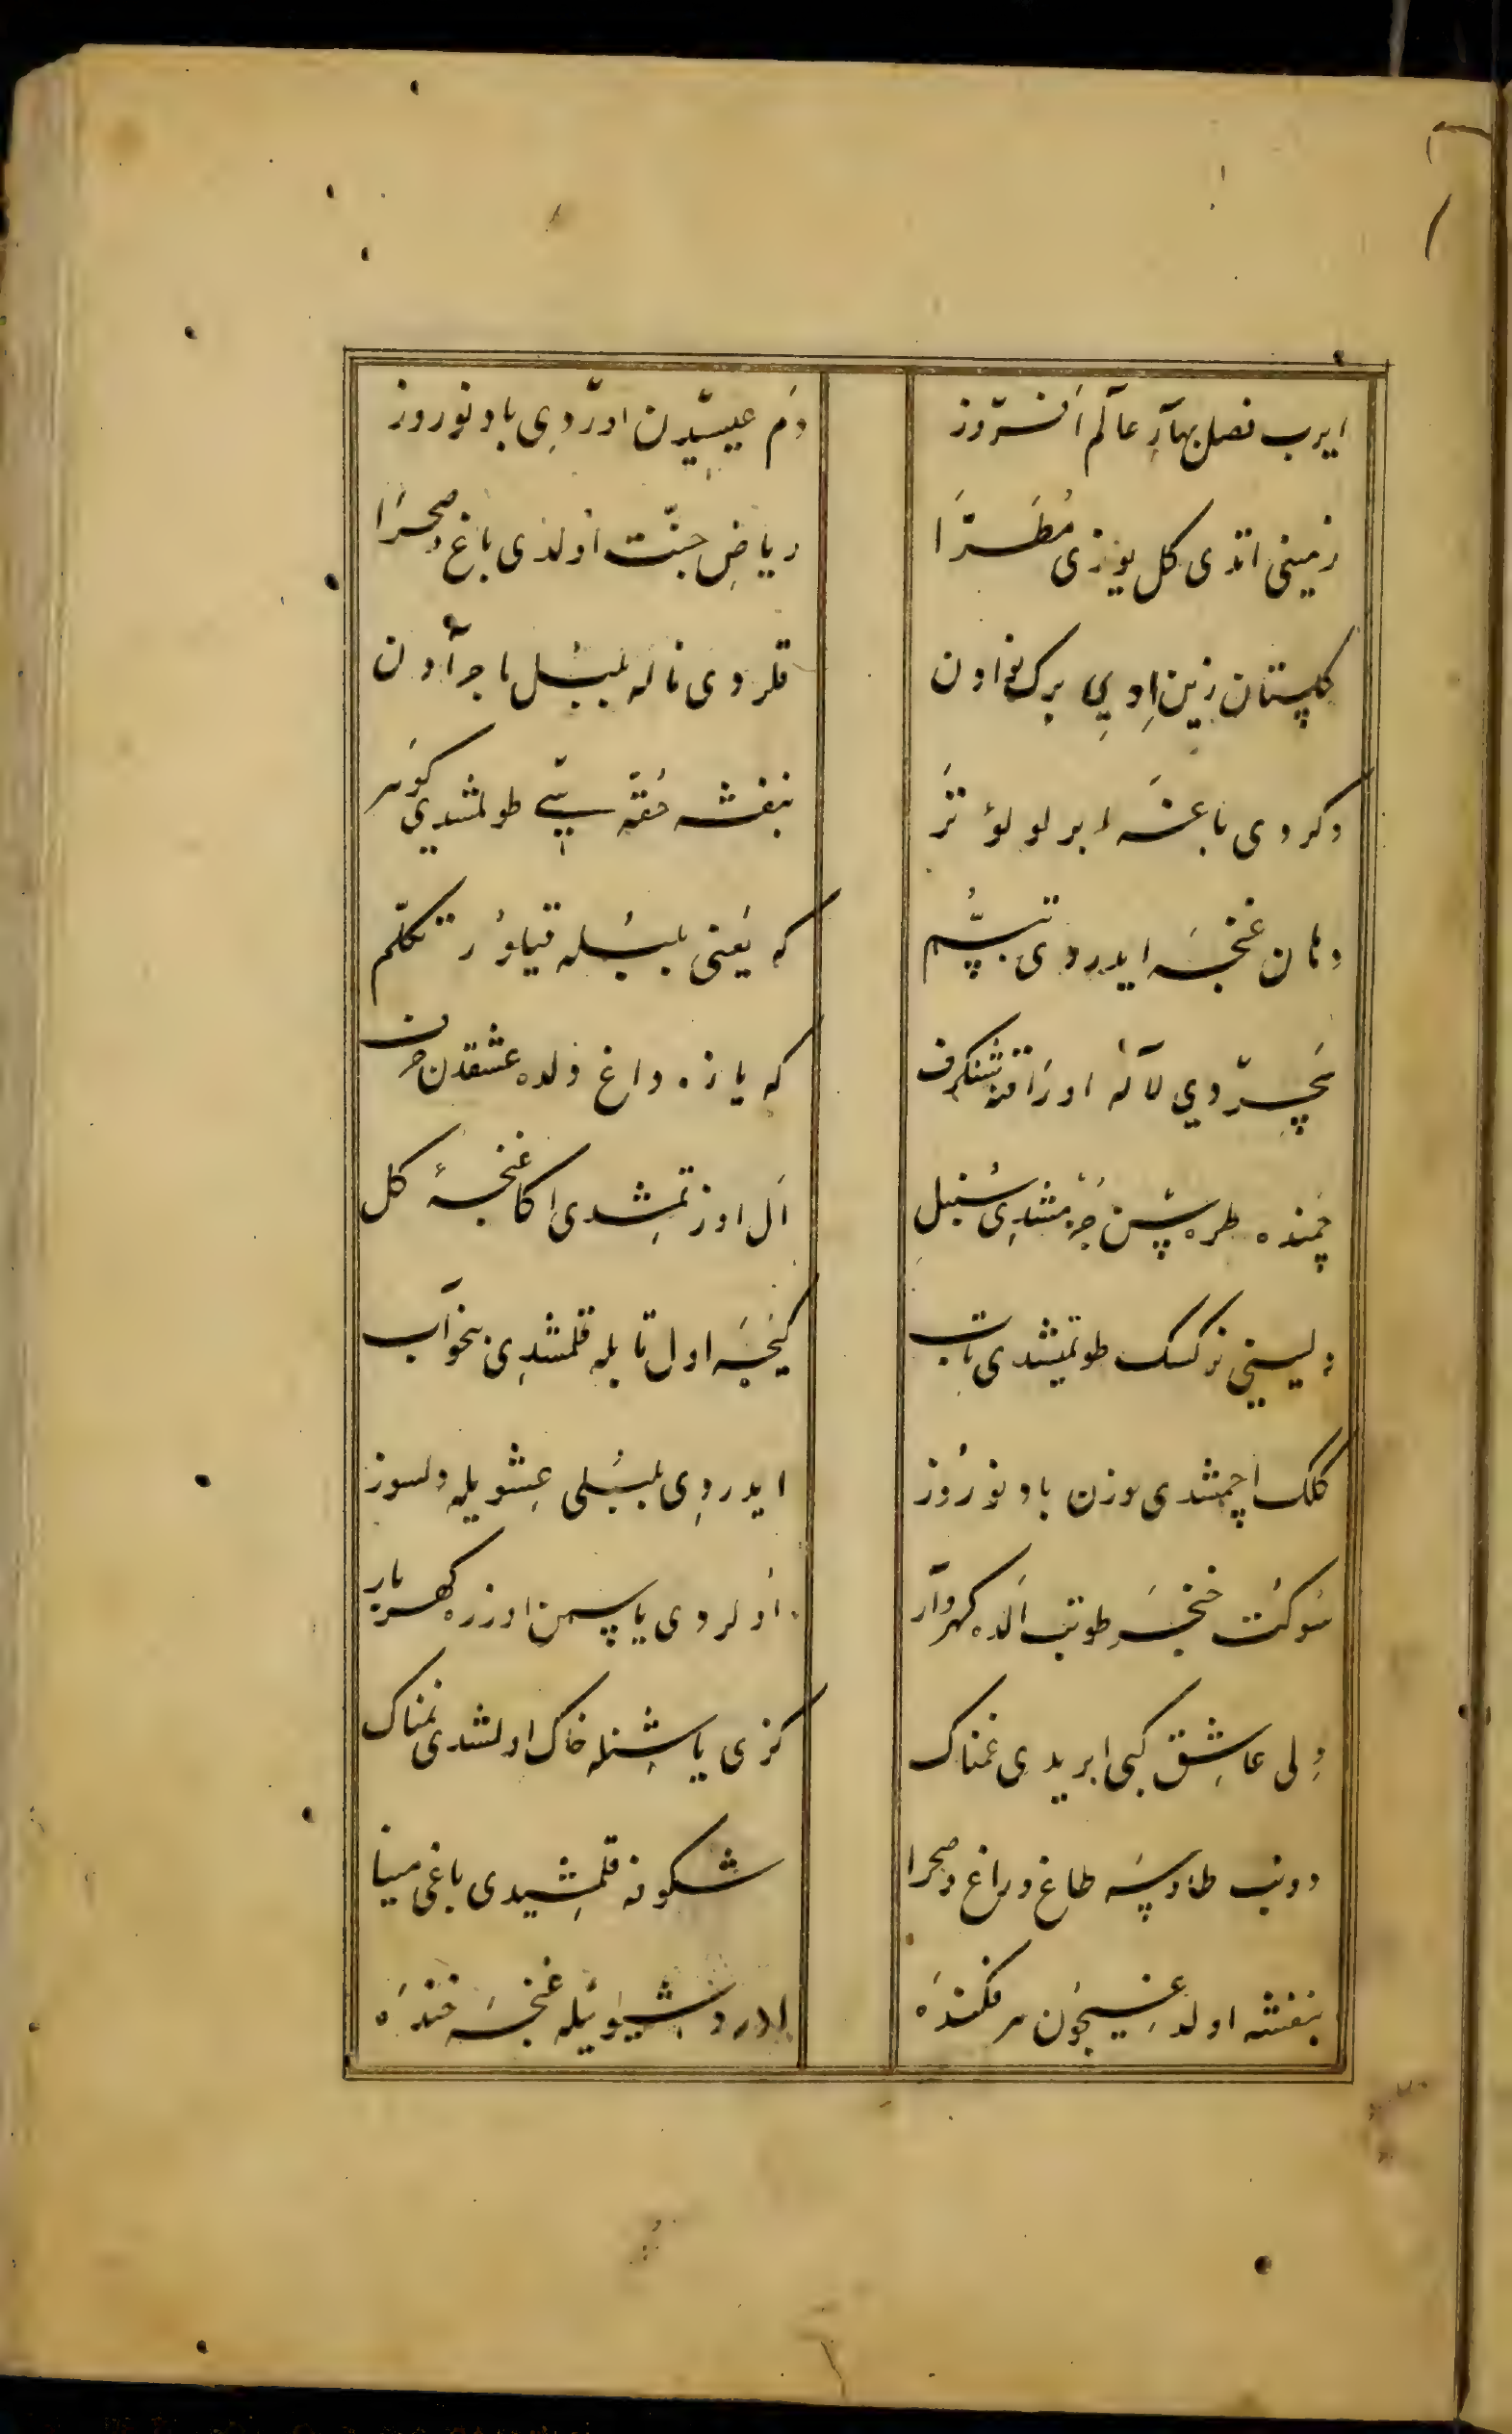 ایرب فصل بهار عالم افروز
دم عیسیدن اوردی باد نوروز
زمینی اتدی کل یوزی مطرا
ریاض جنت اولدی باغ و صحرا
کلستان زین ایدی برک نوادن
قلردی ناله بلبل ماجرادن
دکردی باغه ابر لولؤ تر
بنفشه حقه سی طولمشدی کوهر
دهان غنچه ایدردی تبسم
که یعنی بلبله قیلور تکلم
سچردی لاله اوراقنه شنکرف
که یازه داغ دلده عشقدن حرف
چمنده طره سن چزمشدی سنبل
ال اوزتمشدی اکا غنچهٔ کل
دلسنی نرکسک طوتمشدی تاب
کیجه اول تابله قلمشدی بیخواب
کلک اچمشدی یوزن باد نوروز
ایدردی بلبلی عشویله دلسوز
سوکت خنجر طوتب الده کهروار
اولردی یاسمن اوزره کهربار
دلی عاشق کبی ابریدی غمناک
کزی یاشنله خاک اولمشدی نمناک
دونب طاوسه طاغ و راغ و صحرا
شکوفه قلمشیدی باغی مینا
بنفشه اولدغیچون سرفکنده
ایدرد شیویله غنچه خنده